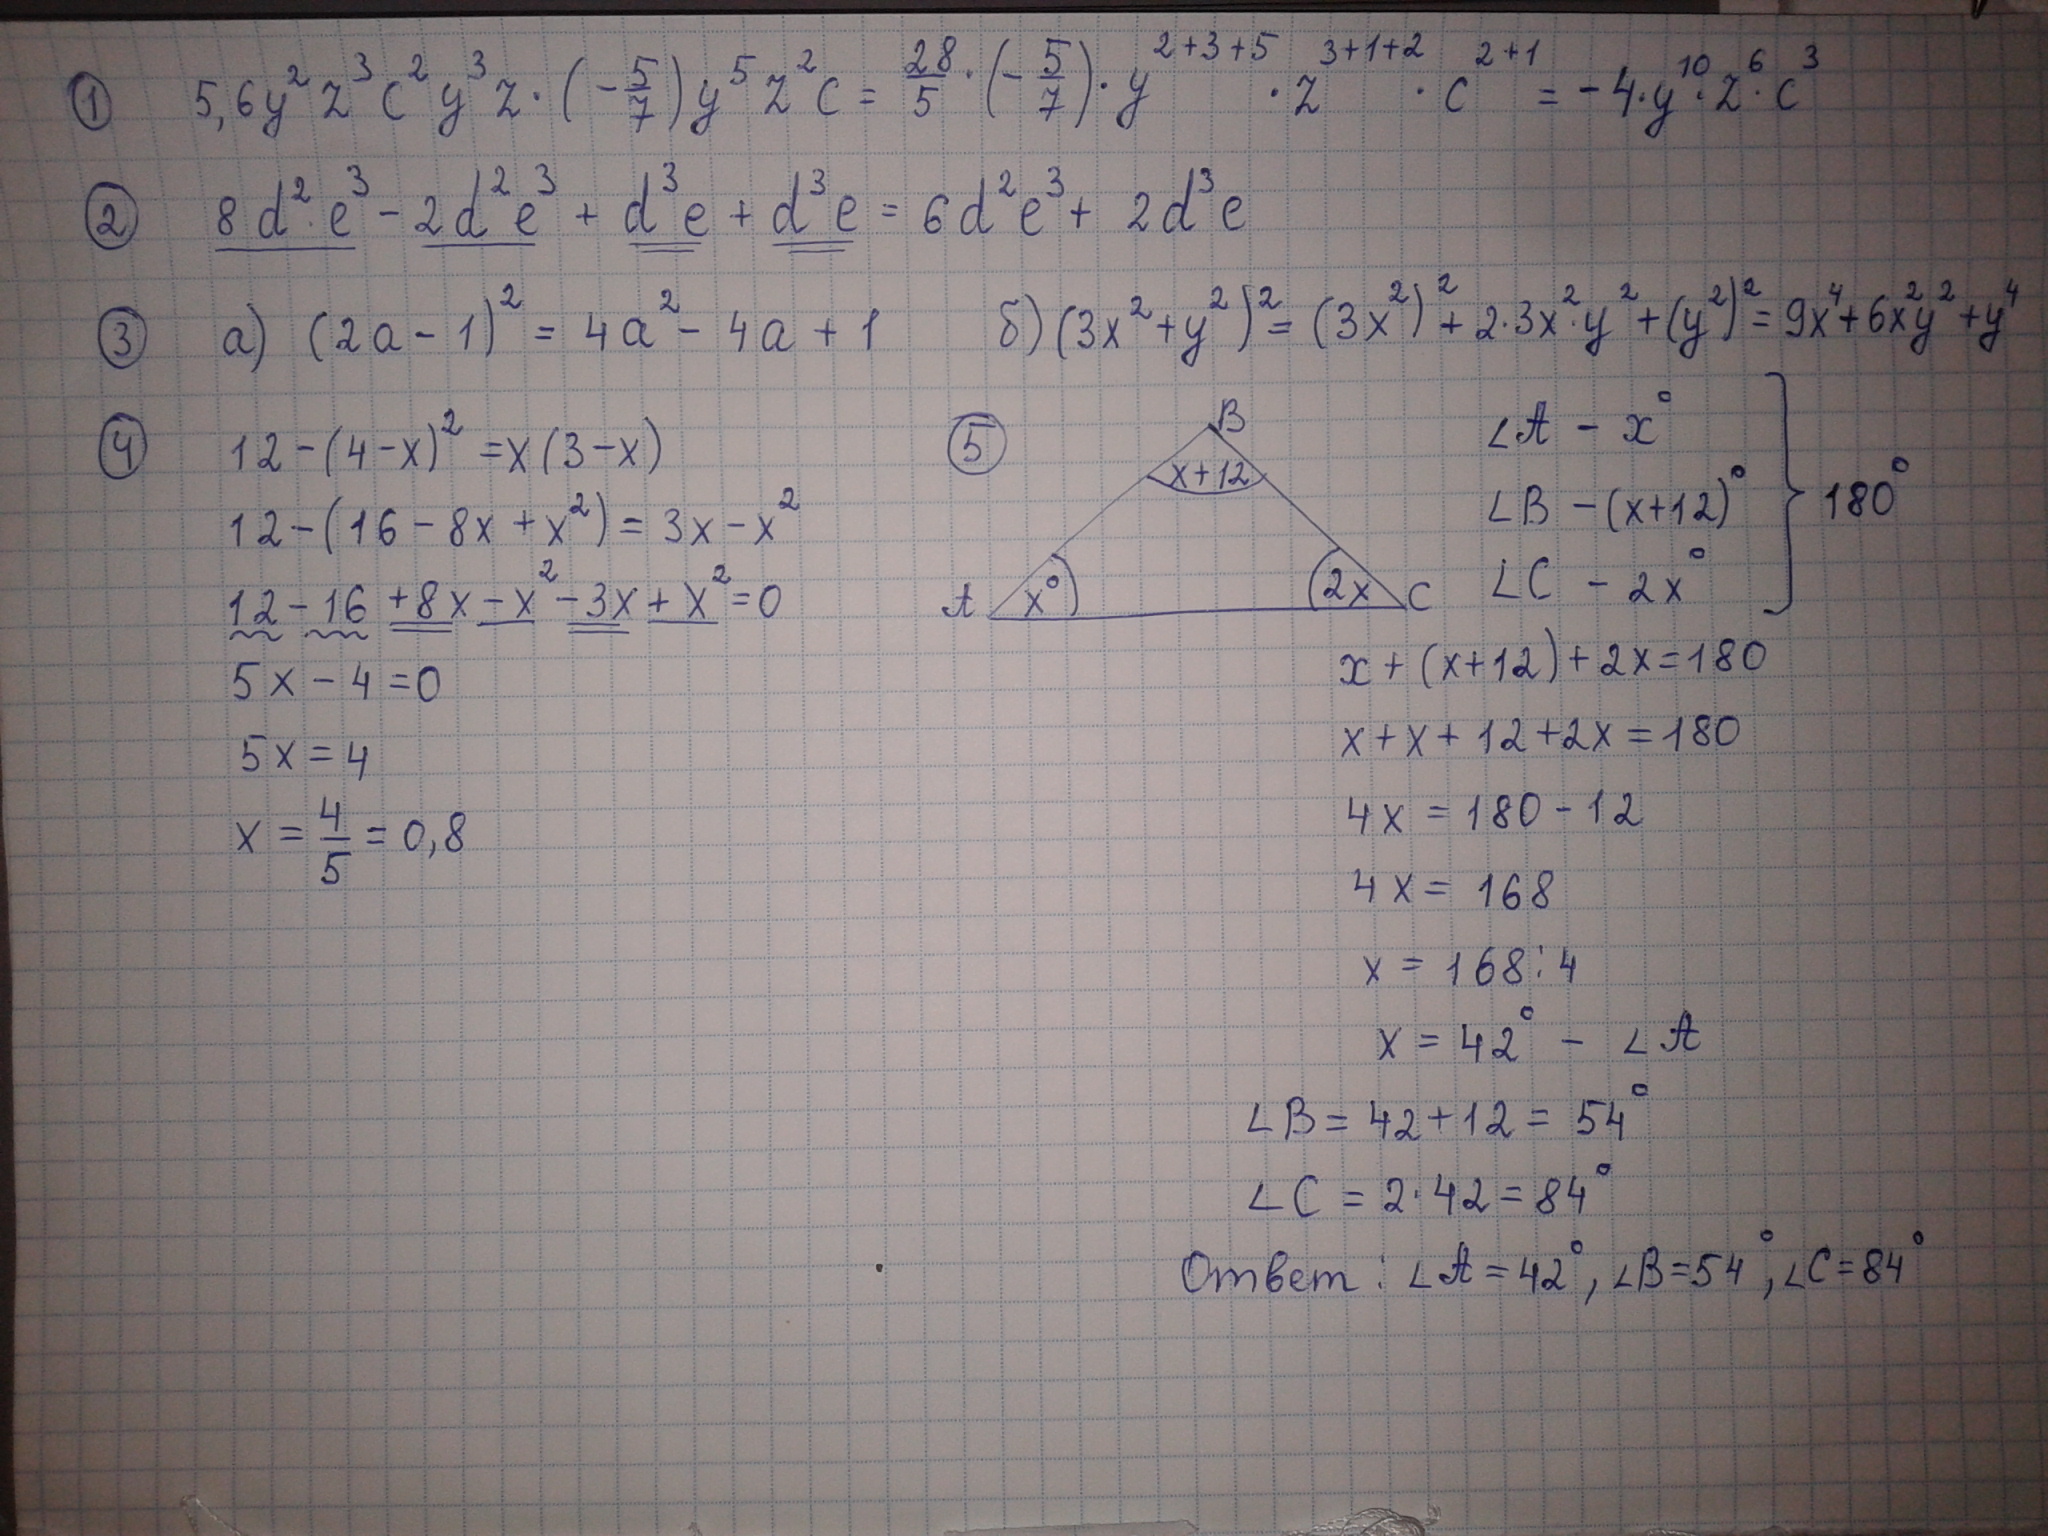 ① 5,6y²z³c²y³z·(-5/7)y⁵z²c = 28/5·(-5/7)·y²⁺³⁺⁵·z³⁺¹⁺²·c²⁺¹ = -4·y¹⁰·z⁶·c³
② 8d²·e³ - 2d²e³ + d³e + d³e = 6d²e³ + 2d³e
③ а) (2a - 1)² = 4a² - 4a + 1 б) (3x² + y²)² = (3x²)² + 2·3x²·y² + (y²)² = 9x⁴ + 6x²y² + y⁴
④ 12 - (4 - x)² = x(3 - x)
12 - (16 - 8x + x²) = 3x - x²
12 - 16 + 8x - x² - 3x + x² = 0
5x - 4 = 0
5x = 4
x = 4/5 = 0,8
⑤ B
x + 12
A x° 2x C
∠A - x°
∠B - (x+12)°
∠C - 2x°
} 180°
x + (x+12) + 2x = 180
x + x + 12 + 2x = 180
4x = 180 - 12
4x = 168
x = 168 : 4
x = 42° - ∠A
∠B = 42 + 12 = 54°
∠C = 2·42 = 84°
Ответ: ∠A = 42°, ∠B = 54°, ∠C = 84°